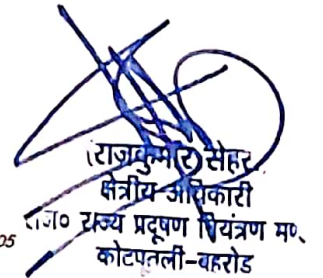 (राजकुमार) सेहर
क्षेत्रीय अधिकारी
राज० राज्य प्रदूषण नियंत्रण म०
05
कोटपूतली-बहरोड